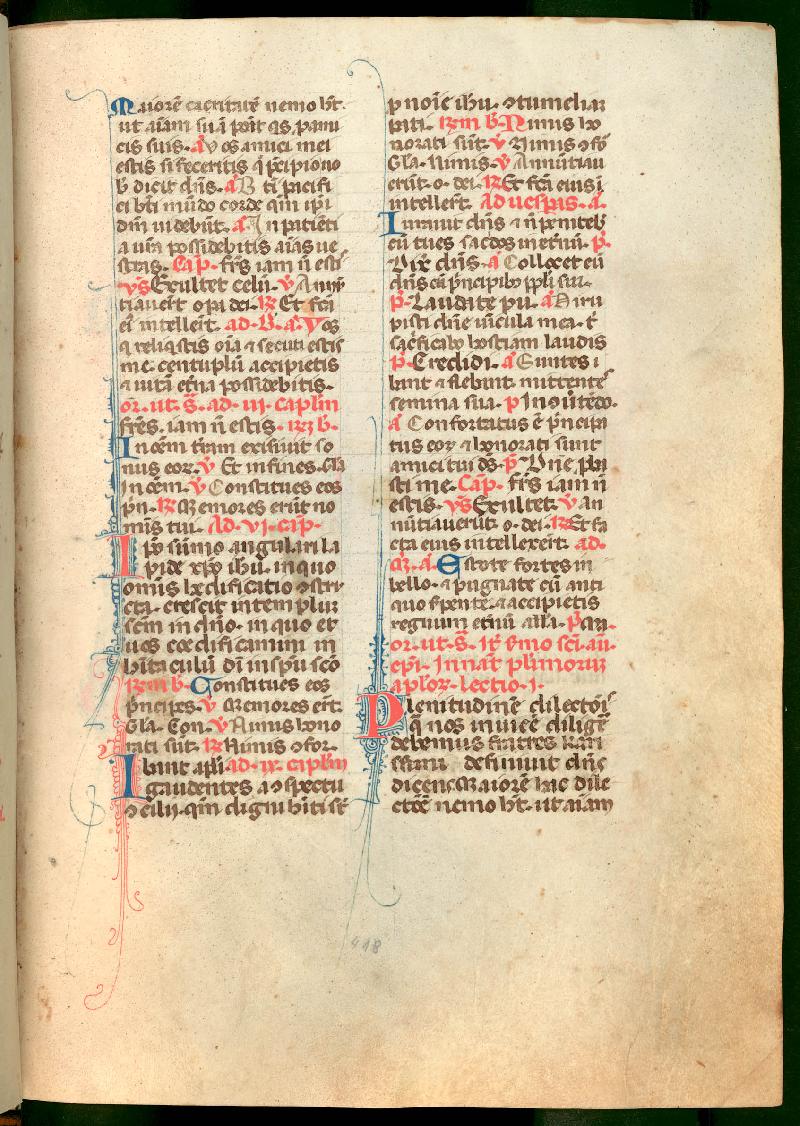 Maiorē caritatē nemo hȳt.
ut aīam suā pōit qs. p amı
cis suis. a̅ Vos amici mei
estis si feceritis q̄ p̄cipio uo
b̄ dicit dn̄s. a̅ Bti pacifi
ci bti mūdo corde qm̄ ip̄i
dm̄ uidebūt. a̅ In patiēti
a urā possidebitis aīas ue
stras. Cap. frs̄ iam n̄ esti
vs̄ Exultet celū. v̄ Annū
tiauer̄t opa dei. ℞ Et fc̄a
eī intellex̄t. ad. B. a̅. Vos
q reliq̄stis oīa ⁊ secuti estis
me. centuplū accipietis
⁊ uitā etn̄a possidebitis.
or. ut. s̄. ad. iii. caplm̄
frēs. iam n̄ estis. ℞m b̄.
In oēm trām exiuit so
nus eor. v̄ Et in fines. Gla
In oēm. v̄ Constitues eos
p̄n. ℞ Memores erūt no
mīs tui. Ad. vi. cap̄.
Ipo sūmo angulari la
pide xp̄o ihū. in quo
omīs hedificatio ↄstr
cta. crescit in templuʒ
scm̄ in dn̄o. in quo et
uos coedificamini in
hītaculū dī in sp̄u scō
℞m b̄. Constitues eos
p̄ncipes. v̄ Memores er̄t.
Gla. Con. v̄ Nimis hono
rati sūt. ℞ Nimis ↄfor.
Ibant ap̄li. ad. ix. capl̄m
gaudentes a ↄspectu
ↄcilij. qm̄ digni hīti st̄
p noīe ihū. ↄtumeliaʒ
pati. ℞m b̄. Nimis ho
norati sūt. v̄ Nimis ↄfō
Gla. Nimis. v̄ Annūtiau
erūt. o. dei. ℞ Et fc̄a eius ī
intellex̄t. Ad uesp̄as. a̅.
Iurauit dn̄s ⁊ n̄ penitebʒ
eū tu es sacdos in etnū. p̄.
Dix̄ dn̄s. a̅ Collocet eū
dn̄s cū p̄ncipibʒ ppli sui.
p̄. Laudate pu. a̅ Diru
pisti dn̄e uīcula mea. t̄
sac̄ficabo hostiam laudis
p̄. Credidi. a̅ Euntes i
bant ⁊ flebant mittentes
semina sua. p̄ In ↄūtēdo.
a̅ Confortatus ē p̄ncipa
tus eoʒ ⁊ honorati sunt
amici tui ds̄. p̄. Dn̄e pba
sti me. Cap̄. frs̄ iam n̄
estis. vs̄ Exultet. v̄ an
nūtiauerūt. o. dei. ℞ Et fa
cta eius intellexer̄t. ad.
m̄. a̅. Estote fortes in
bello. ⁊ pugnate cū anti
quo s̄pente. ⁊ accipietis
regnum etn̄ū alla.
or. ut. s̄. It̄ s̄mo sc̄i. au.
ep̄i. In nat̄ plimorūʒ
aploʒ. lectio. i.
Plenitudinē dilectōīs
q̄ nos inuicē diligē
debemus fratres kari
ssimi defīniuit dn̄s
dicens. Maiorē hac dile
ctōē nemo hȳt. ut aīam
418